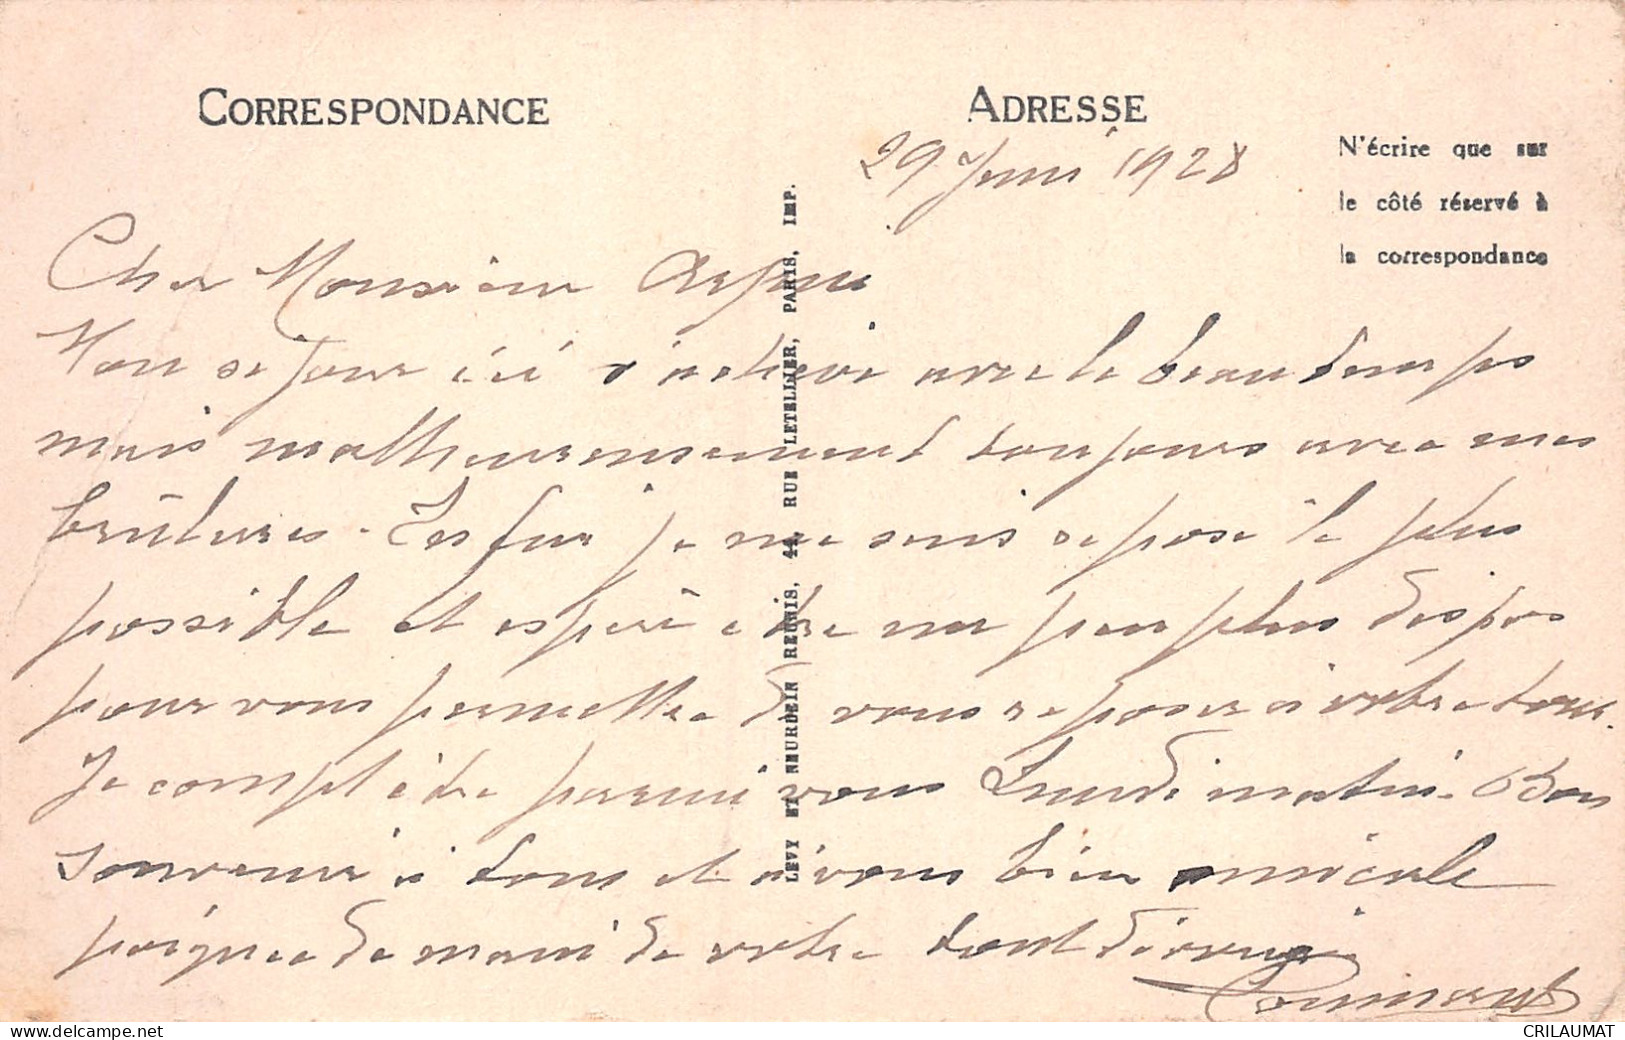 CORRESPONDANCE
ADRESSE
N'écrire que sur
le côté réservé à
la correspondance
29 Juin 1928
Cher Monsieur
Mon séjour ici s'achève avec le beau temps
mais malheureusement toujours avec mes
brûlures. Enfin je me suis reposé le plus
possible et espère être un peu plus dispos
pour vous permettre de vous reposer à votre tour.
Je compte être parmi vous Lundi matin. Bon
souvenir à tous et à vous bien amicale
poignée de main de votre tout dévoué
LEVY ET NEURDEIN REUNIS, 44, RUE LETELLIER, PARIS, IMP.
CRILAUMAT
delcampe.net